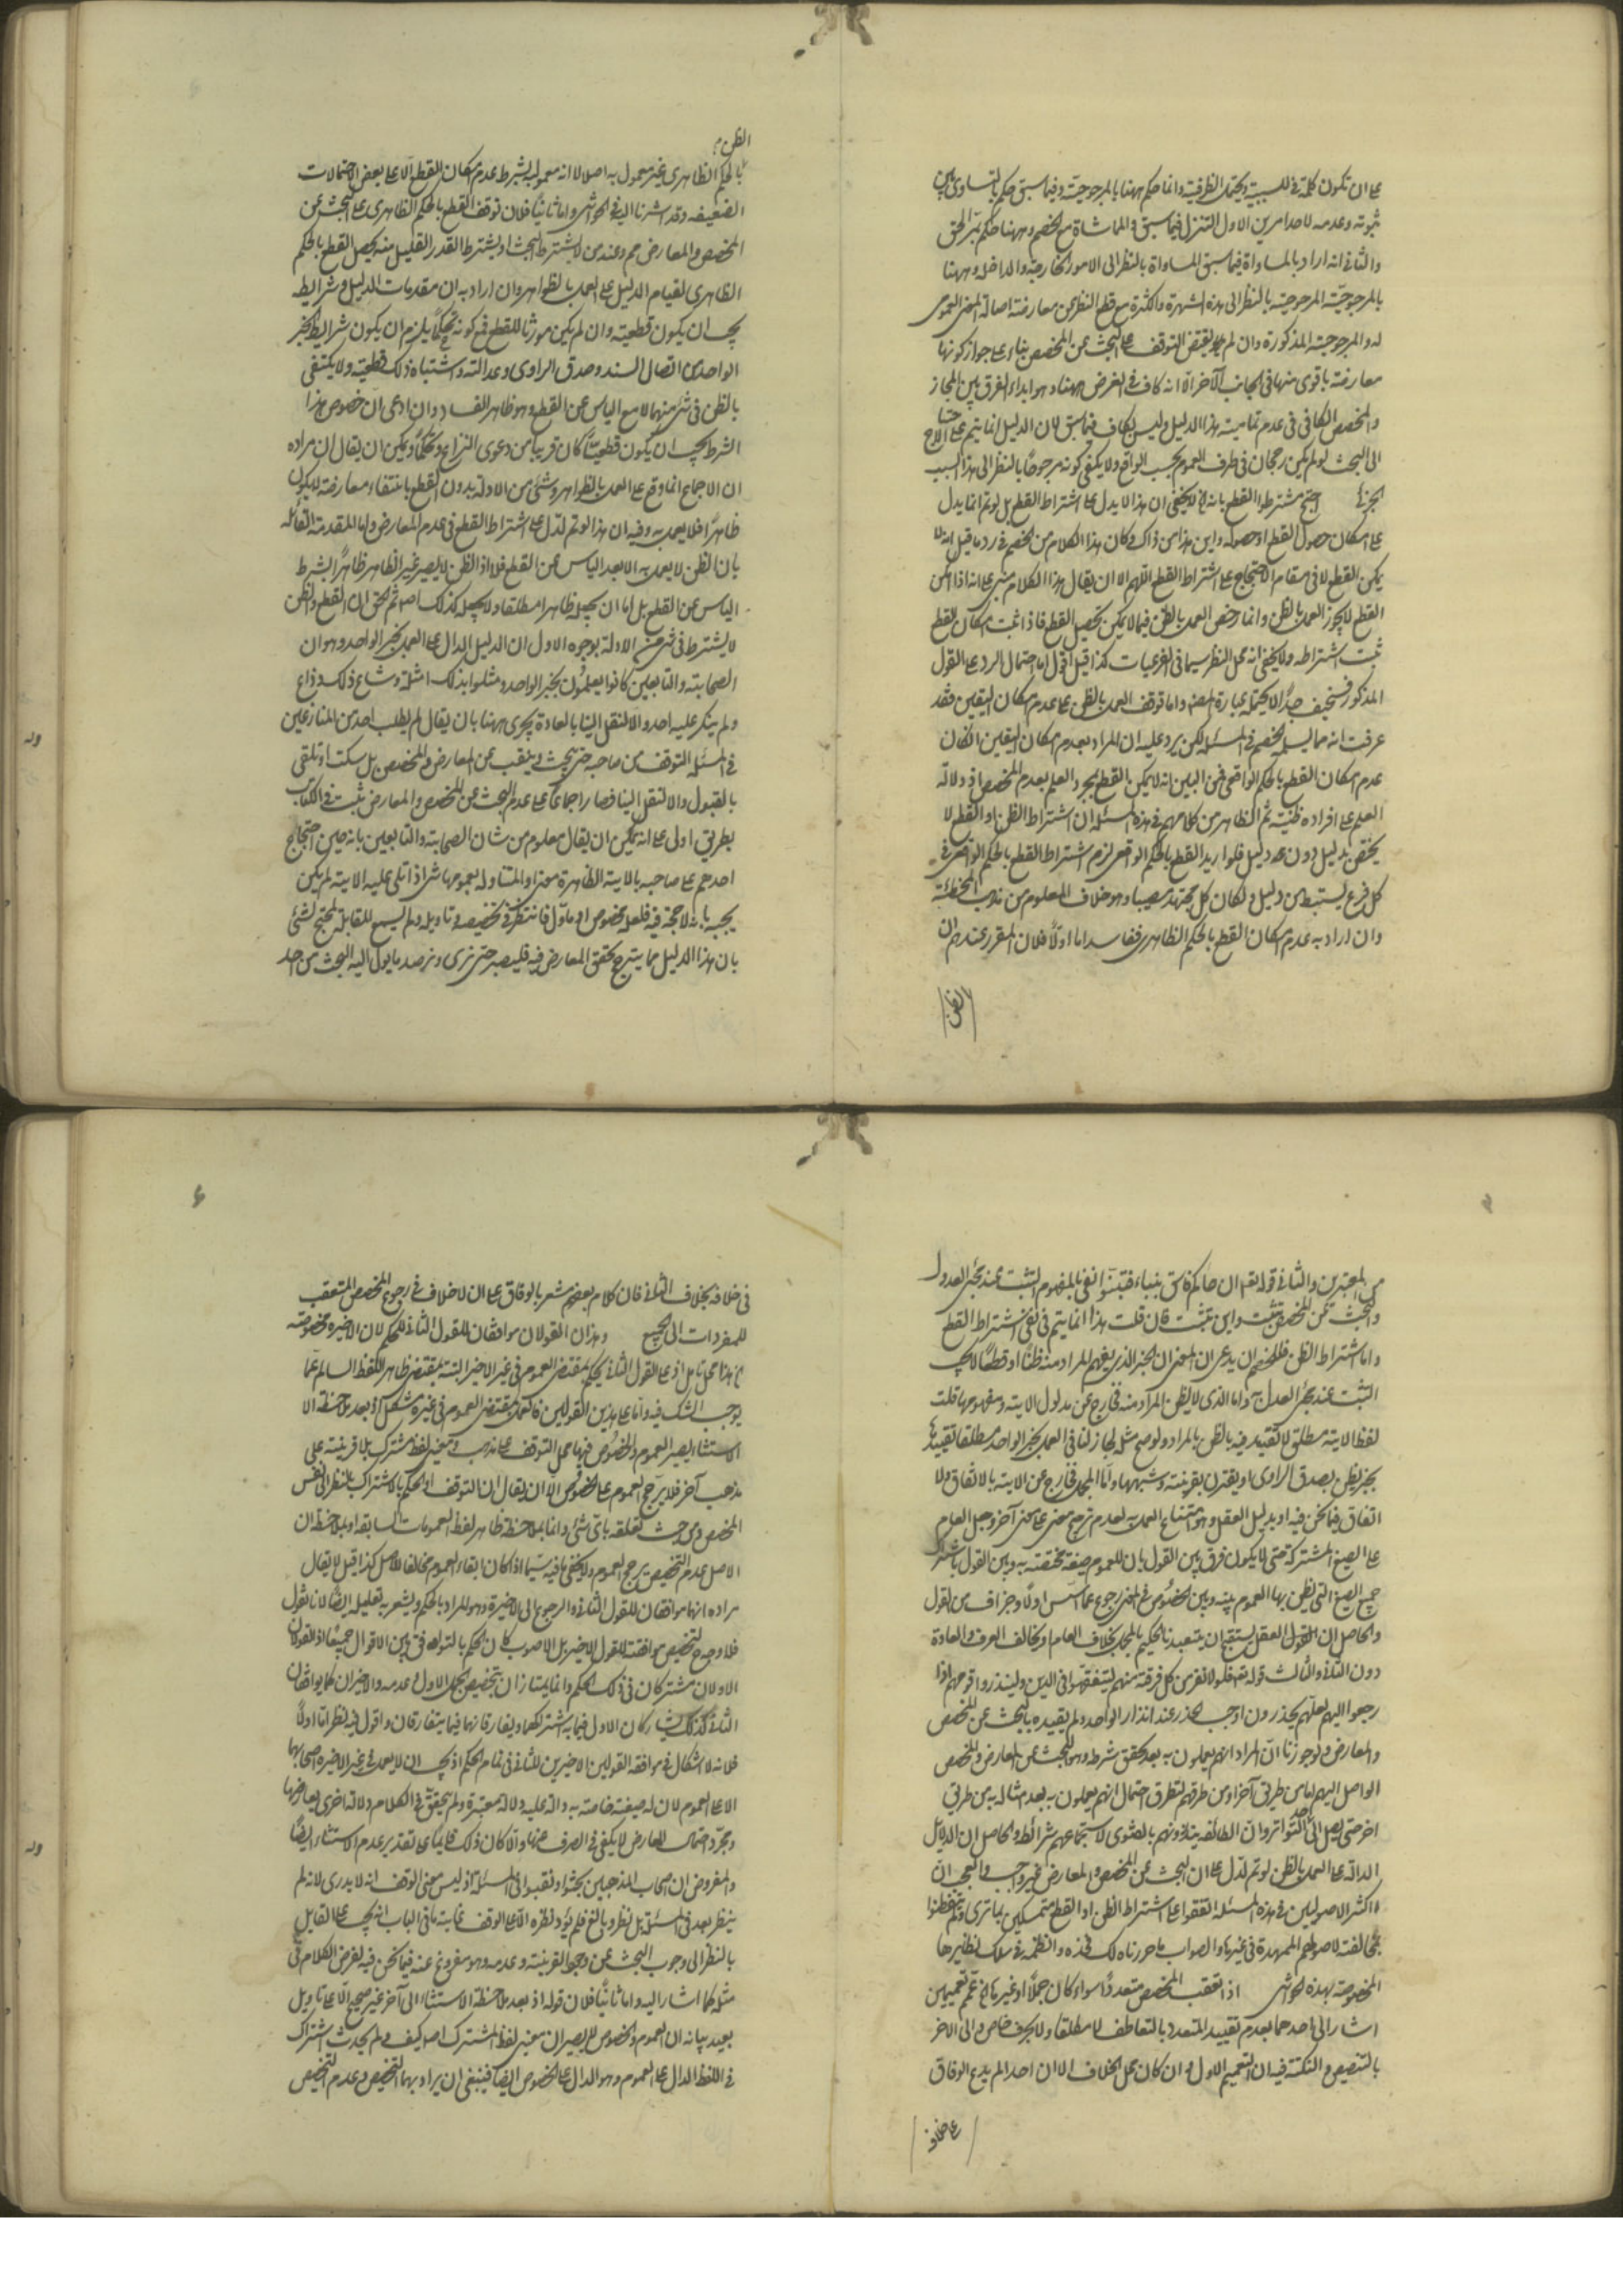 على ان تكون كلمة في للسببية ويحتمل الظرفية وانما حكم ههنا بالمرجوحية وفيما سبق حكم بالتساوى بين
ثبوته وعدمه لاحد امرين الاول التنزل فيما سبق والمماشاة مع الخصم وههنا حكم بمر الحق
والثانى انه اراد بالمساواة فيما سبق المساواة بالنظر الى الامور الخارجية والداخلة وههنا
بالمرجوحية المرجوحية بالنظر الى هذه الشهرة والكثرة مع قطع النظر عن معارضة اصالة المعنى العمومى
له والمرجوحية المذكورة وان لم يقتض التوقف على البحث عن المخصص بناء على جواز كونها
معارضة باقوى منها في الجانب الآخر الا انه كاف في الغرض ههنا وهو ابداء الفرق بين المجاز
والمخصص الكافى في عدم تمامية هذا الدليل وليس بكاف فيما سبق لان الدليل انما يتم على
الى البحث لو لم يكن رجحان في طرف العموم بحسب الواقع ولا يكفى كونه مرجوحا بالنظر الى هذا السبب
الجزئى احتج مشترطوا القطع بانه لا يخفى ان هذا لا يدل على اشتراط القطع بل لو تم انما يدل
على امكان حصول القطع او حصوله واين هذا من ذاك وكان هذا الكلام من الخصم في رد ما قيل انه لا
يمكن القطع لا في مقام الاحتجاج على اشتراط القطع اللهم الا ان يقال هذا الكلام مبنى على انه اذا امكن
القطع لا يجوز العمل بالظن وانما رخص العمل بالظن فيما لا يمكن تحصيل القطع فاذا ثبت امكان القطع
ثبت اشتراطه ولا يخفى انه محل النظر سيما في الفرعيات كذا قيل اقول اما احتمال الرد على القول
المذكور فسخيف جدا لا يحتمله عبارة المصنف واما توقف العمل بالظن على عدم امكان اليقين فقد
عرفت انه مما يسلمه الخصم في المسئلة لكن يرد عليه ان المراد بعدم امكان اليقين ان كان
عدم امكان القطع بالحكم الواقعى فمن البين انه لا يمكن القطع بمجرد العلم بعدم المخصص اذ دلالة
العلم على افراده ظنية ثم الظاهر من كلامهم في هذه المسئلة ان اشتراط الظن او القطع لا
يختص بدليل دون دليل فلو اريد القطع بالحكم الواقعى لزم اشتراط القطع بالحكم الواقعى في
كل فرع يستنبط من دليل ولكان كل مجتهد مصيبا وهو خلاف المعلوم من مذهب المخطئة
وان اراد به عدم امكان القطع بالحكم الظاهرى ففاسد اما اولا فلان المقرر عندهم ان
الظن
الظن
بالحكم الظاهرى غير معمول به اصلا لا انه معمول بشرط عدم امكان القطع الا على بعض الاحتمالات
الضعيفة وقد اشرنا اليه في الحواشى واما ثانيا فلان توقف القطع بالحكم الظاهرى على البحث عن
المخصص والمعارض مم وعند من لا يشترط البحث او يشترط القدر القليل منه يحصل القطع بالحكم
الظاهرى لقيام الدليل على العمل بالظواهر وان اراد به ان مقدمات الدليل وشرايطه
يجب ان يكون قطعية وان لم يكن مورثا للقطع فمع كونه تحكما يلزم ان يكون شرايط الخبر
الواحد من اتصال السند وصدق الراوى وعدالته واشتباه ذلك قطعية ولا يكتفى
بالظن في شئ منهما الا مع الياس عن القطع وهو ظاهر الفساد وان ادعى ان خصوص هذا
الشرط يجب ان يكون قطعيا كان قريبا من دعوى النزاع وتحكما ويمكن ان يقال ان مراده
ان الاجماع انما وقع على العمل بالظواهر وشئ من الادلة بدون القطع بانتفاء معارضه لا يكون
ظاهرا فلا يعمل به وفيه ان هذا لو تم لدل على اشتراط القطع في عدم المعارض واما المقدمة القائلة
بان الظن لا يعمل به الا بعد الياس عن القطع فلا اذ الظن لا يصير غير الظاهر ظاهرا بشرط
الياس عن القطع بل اما ان يجعله ظاهرا مطلقا ولا يجعله كذلك اصلا ثم الحق ان القطع والظن
لا يشترط في شئ من الادلة بوجوه الاول ان الدليل الدال على العمل بخبر الواحد وهو ان
الصحابة والتابعين كانوا يعملون بخبر الواحد ومثلوا بذلك امثلة وشاع ذلك وذاع
ولم ينكر عليه احد والا لنقل الينا بالعادة يجرى ههنا بان يقال لم يطلب احد من المنازعين
في المسئلة التوقف من صاحبه حتى يبحث وينقب عن المعارض والمخصص بل سكت او تلقى
بالقبول والا لنقل الينا فصار اجماعا على عدم البحث عن المخصص والمعارض ثبت في الكتاب
بطريق اولى على انه يمكن ان يقال معلوم من شان الصحابة والتابعين بانه حين احتجاج
احدهم على صاحبه بالاية الظاهرة معنى او المتناوله بعمومها شئ اذا تلى عليه الاية لم يكن
يجيبه بانه لا حجة فيه فلعله مخصوص او ماول فانتظر في تخصيصه وتاويله ولم ليسمع للمقابل المحتج لشئ
بان هذا الدليل مما يترجح تحقق المعارض فيه فليصبر حتى نرى ونرصد ما يول اليه البحث من احد
من المعتبرين والثانى قوله تعالى ان جاءكم فاسق بنباء فتبينوا نفى بالمفهوم التثبت عند خبر العدل
والبحث عن المخصص تثبت واى تثبت فان قلت هذا انما يتم في نفى اشتراط القطع
واما اشتراط الظن فللخصم ان يدعى ان المعنى ان الخبر الذى يفهم المراد منه ظنا او قطعا لا يجب
التثبت عند خبر العدل به واما الذى لا يظن المراد منه فخارج عن مدلول الاية ومفهومها قلت
لفظ الاية مطلق لا تقييد فيه بالظن بالمراد ولو صح مثله لجاز لنا في العمل بخبر الواحد مطلقا تقييدها
بخبر يظن بصدق الراوى او يقترن بقرينة وشبهها واما المجمل فخارج عن الاية بالاتفاق ولا
اتفاق فيما نحن فيه او بدليل العقل وهو امتناع العمل به لعدم ترجيح معنى على معنى آخر وجعل العام
على الصيغ المشتركة حتى لا يكون فرق بين القول بان للعموم صيغة مختصة به وبين القول باشتراك
جميع الصيغ التى يظن بها العموم بينه وبين الخصوص في المعنى رجوع عما اسس اولا وجزاف من القول
والحاصل ان العقل يستقبح ان يتعبدنا الحكيم بالمجمل بخلاف العام ويخالف العرف والعادة
دون الثانى والثالث قوله تعالى فلولا نفر من كل فرقة منهم ليتفقهوا في الدين ولينذروا قومهم اذا
رجعوا اليهم لعلهم يحذرون اوجب الحذر عند انذار الواحد ولم يقيده بالبحث عن المخصص
والمعارض ولو جوزنا ان المراد انهم يعملون به بعد تحقق شرطه وهو البحث عن المعارض والمخصص
الواصل اليهم اما من طريق آخر او من طرقهم لتطرق احتمال انهم يعملون به بعد امثاله به من طريق
اخر حتى يصل الى حد التواتر وان الطائفة ينذرونهم بالفتوى لاستجماعهم شرائط والحاصل ان الدلائل
الدالة على العمل بالظن لو تم لدل على ان البحث عن المخصص والمعارض غير واجب والعجب ان
اكثر الاصوليين في هذه المسئلة اتفقوا على اشتراط الظن او القطع متمسكين بما ترى ولم يتفطنوا
بمخالفته لاصولهم الممهدة في غيرها والصواب ما حررناه لك فخذه وانظمه في سلك نظايرها
المخصوصة بهذه الحواشى اذا تعقب المخصص متعددا سواء كان جملا او غيرها ثم عمم تعميمين
اشار الى احدهما بعدم تقييد المتعدد بالتعاطف لا مطلقا ولا بحرف خاص والى الاخر
بالتنصيص والنكتة فيه ان التعميم الاول وان كان محل الخلاف الا ان احدا لم يدع الوفاق
على خلافه
في خلافه بخلاف الثانى فان كلام بعضهم مشعر بالوفاق على ان لا خلاف في رجوع المخصص المتعقب
للمفردات الى الجميع وهذان القولان موافقان للقول الثانى للحكم لان الاخيرة مخصوصة
هذا محل تامل اذ على القول الثانى يحكم بمقتضى العموم في غير الاخير البتة بمقتضى ظاهر اللفظ السالم عما
يوجب الشك فيه واما على هذين القولين فالعمل بمقتضى العموم في غيره مشكل اذ بعد ملاحظة الا
الاستثناء يصير العموم والخصوص فيهما محل التوقف على مذهب ومعنى لفظ مشترك بلا قرينة على
مذهب آخر فلا يرجح العموم على الخصوص الا ان يقال ان التوقف او الحكم بالاشتراك بالنظر الى نفس
المخصص ومن حيث تعلقه باى شئ واما بملاحظة ظاهر لفظ العمومات السابقة او بملاحظة ان
الاصل عدم التخصيص يرجح العموم ولا يخفى ما فيه سيما اذا كان ابقاء العموم مخالفا للاصل كذا قيل لا يقال
مراده انهما موافقان للقول الثانى والرجوع الى الاخيرة وهو المراد بالحكم ويشعر به تعليله ايضا لانا نقول
فلا وجه لتخصيص موافقته للقول الاخير بل الاصوب كان الحكم بالتوافق بين الاقوال جميعا اذ القولان
الاولان مشتركان في ذلك الحكم وانما يمتازان بتخصيص محل الاول وعدمه والاخيران كما يوافقان
الثانى كذلك يشاركان الاول فيما به اشتراكهما ويفارقانهما فيما يتفارقان واقول فيه نظر اما اولا
فلانه لا اشكال في موافقة القولين الاخيرين للثانى في تمام الحكم اذ يجب ان لا يعمل في غير الاخيره اصحابهما
الا على العموم لان له صيغة خاصة به دالة عليه دلالة معتبرة ولم يتحقق في الكلام دلالة اخرى يعارضها
ومجرد احتمال المعارض لا يكفى في الصرف عنها والا كان ذلك قائما على تقدير عدم الاستثناء ايضا
والمفروض ان اصحاب المذهبين بحثوا ونقبوا في المسئلة اذ ليس معنى الوقف انه لا يدرى لانه لم
ينظر بعد في المسئلة بل نظر وبالغ فلم يؤد نظره الا على الوقف غاية ما في الباب انه يجب على القايل
بالنظر الى وجوب البحث عن وجود القرينة وعدمه وهو مفروغ عنه فيما نحن فيه لفرض الكلام في
مثله كما اشار اليه واما ثانيا فلان قوله اذ بعد ملاحظة الاستثناء الى آخره غير صحيح الا على تاويل
بعيد بيانه ان العموم والخصوص لا يصيران معنى لفظ المشترك اصلا كيف ولم يحدث اشتراك
في اللفظ الدال على العموم وهو الدال على الخصوص ايضا فينبغى ان يراد بهما التخصيص وعدم التخصيص